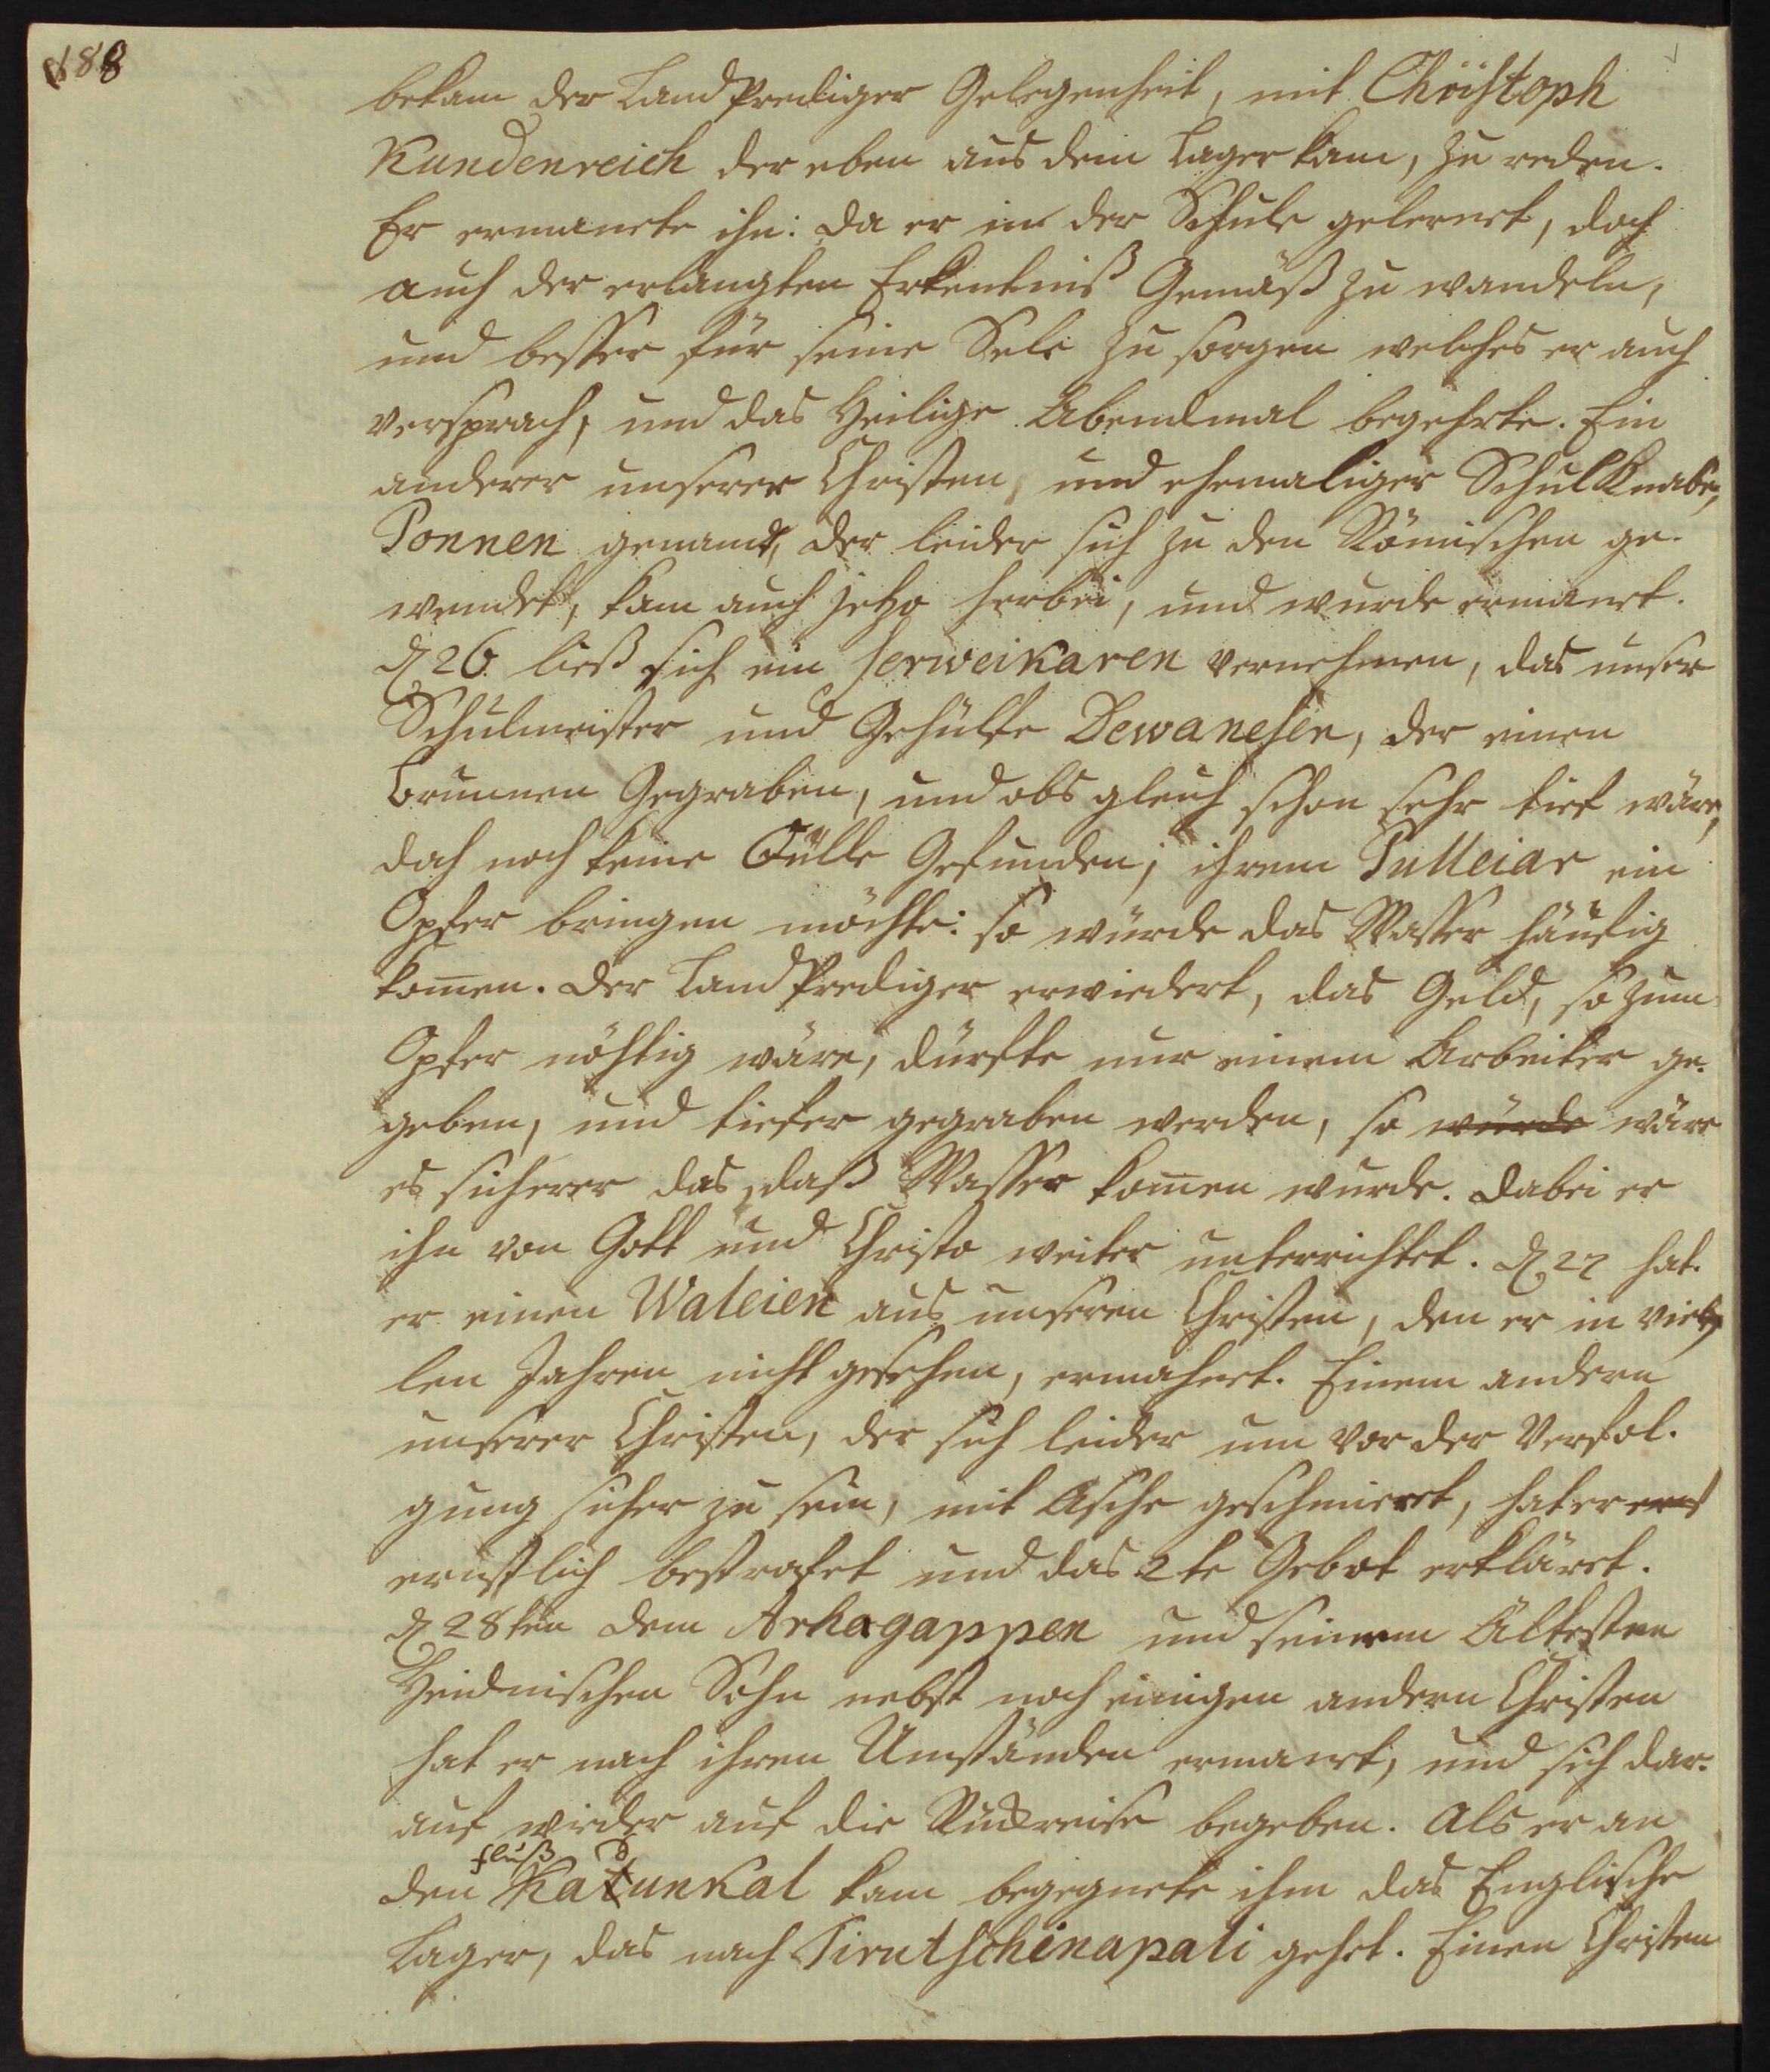 188
bekam der Land Prediger Gelegenheit, mit Christoph
Kundenreich der eben aus dem Lager kam, zu reden.
Er ermanete ihn: da er in der Schule gelernet, doch
auch der erlangten Erkentniß Gemäß zu wandeln,
und besser für seine Sele zu sorgen welches er auch
versprach, und das Heilige Abendmal begehrte. Ein
anderer unserer Christen, und ehemaliger Schul Knabe,
Ponnen genannt, der leider sich zu den Römischen ge-
wendet, kam auch jetzo herbei, und wurde ermanet.
d 26. ließ sich ein Serweikaren vernehmen, das unser
Schulmeister und Gehülfe Dewanesen, der einen
Brunnen Gegraben, und obs gleich schon sehr tief wäre,
doch noch keine Qülle Gefunden; ihrem Pulleiar ein
Opfer bringen möchte: so würde das Wasser häufig
kom̅en. Der Land Prediger erwiedert, das Geld, so zum
Opfer nöhtig wäre, dürfte nur einem Arbeiter ge-
geben, und tiefer gegraben werden, so würde wäre
es sicherer das, daß Wasser kom̅en wurde. Dabei er
ihn von Gott und Christo weiter unterrichtet. d 27 hat
er einen Waleien aus unseren Christen, den er in vie-
len Jahren nicht gesehen, ermahnet. Einem andern
unserer Christen, der sich leider um vor der Verfol-
gung sicher zu sein, mit Asche geschmieret, hat er ernst
ernstlich bestrafet und das 2te Gebot erkläret.
d 28ten dem Arhagappen und seinem Ältesten
Heidnischen Sohn nebst noch einigen andern Christen
hat er nach ihren Umständen ermanet, und sich dar-
auf wieder auf die Rückreise begeben. Als er an
fluß d
den Katunkal kam begegnete ihm das Englische
Lager, das nach Tirutschinapali gehet. Einen Christen